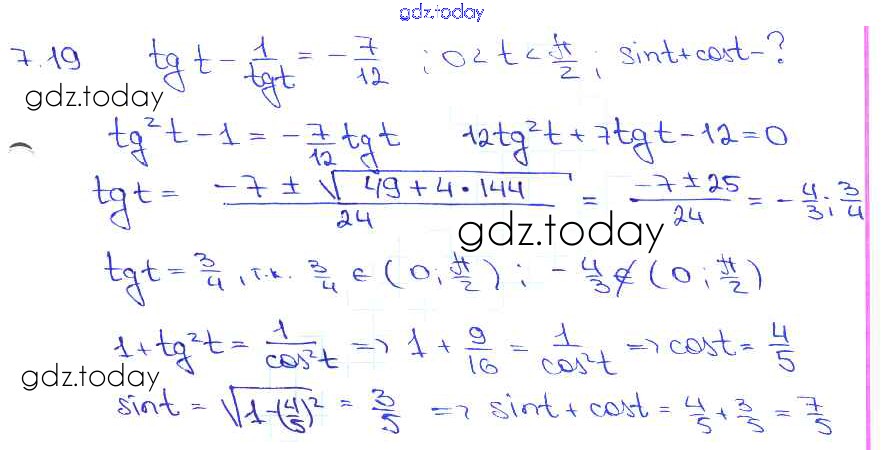 gdz.today
7.19 tg t - 1/tgt = -7/12 ; 0 < t < π/2 ; sint + cost - ?
gdz.today
tg²t - 1 = -7/12 tgt 12tg²t + 7tgt - 12 = 0
tgt = (-7 ± √(49 + 4·144))/24 = (-7 ± 25)/24 = -4/3; 3/4
gdz.today
tgt = 3/4, т.к. 3/4 ∈ (0; π/2) ; -4/3 ∉ (0; π/2)
1 + tg²t = 1/cos²t => 1 + 9/16 = 1/cos²t => cost = 4/5
gdz.today
sint = √(1-(4/5)²) = 3/5 => sint + cost = 4/5 + 3/5 = 7/5